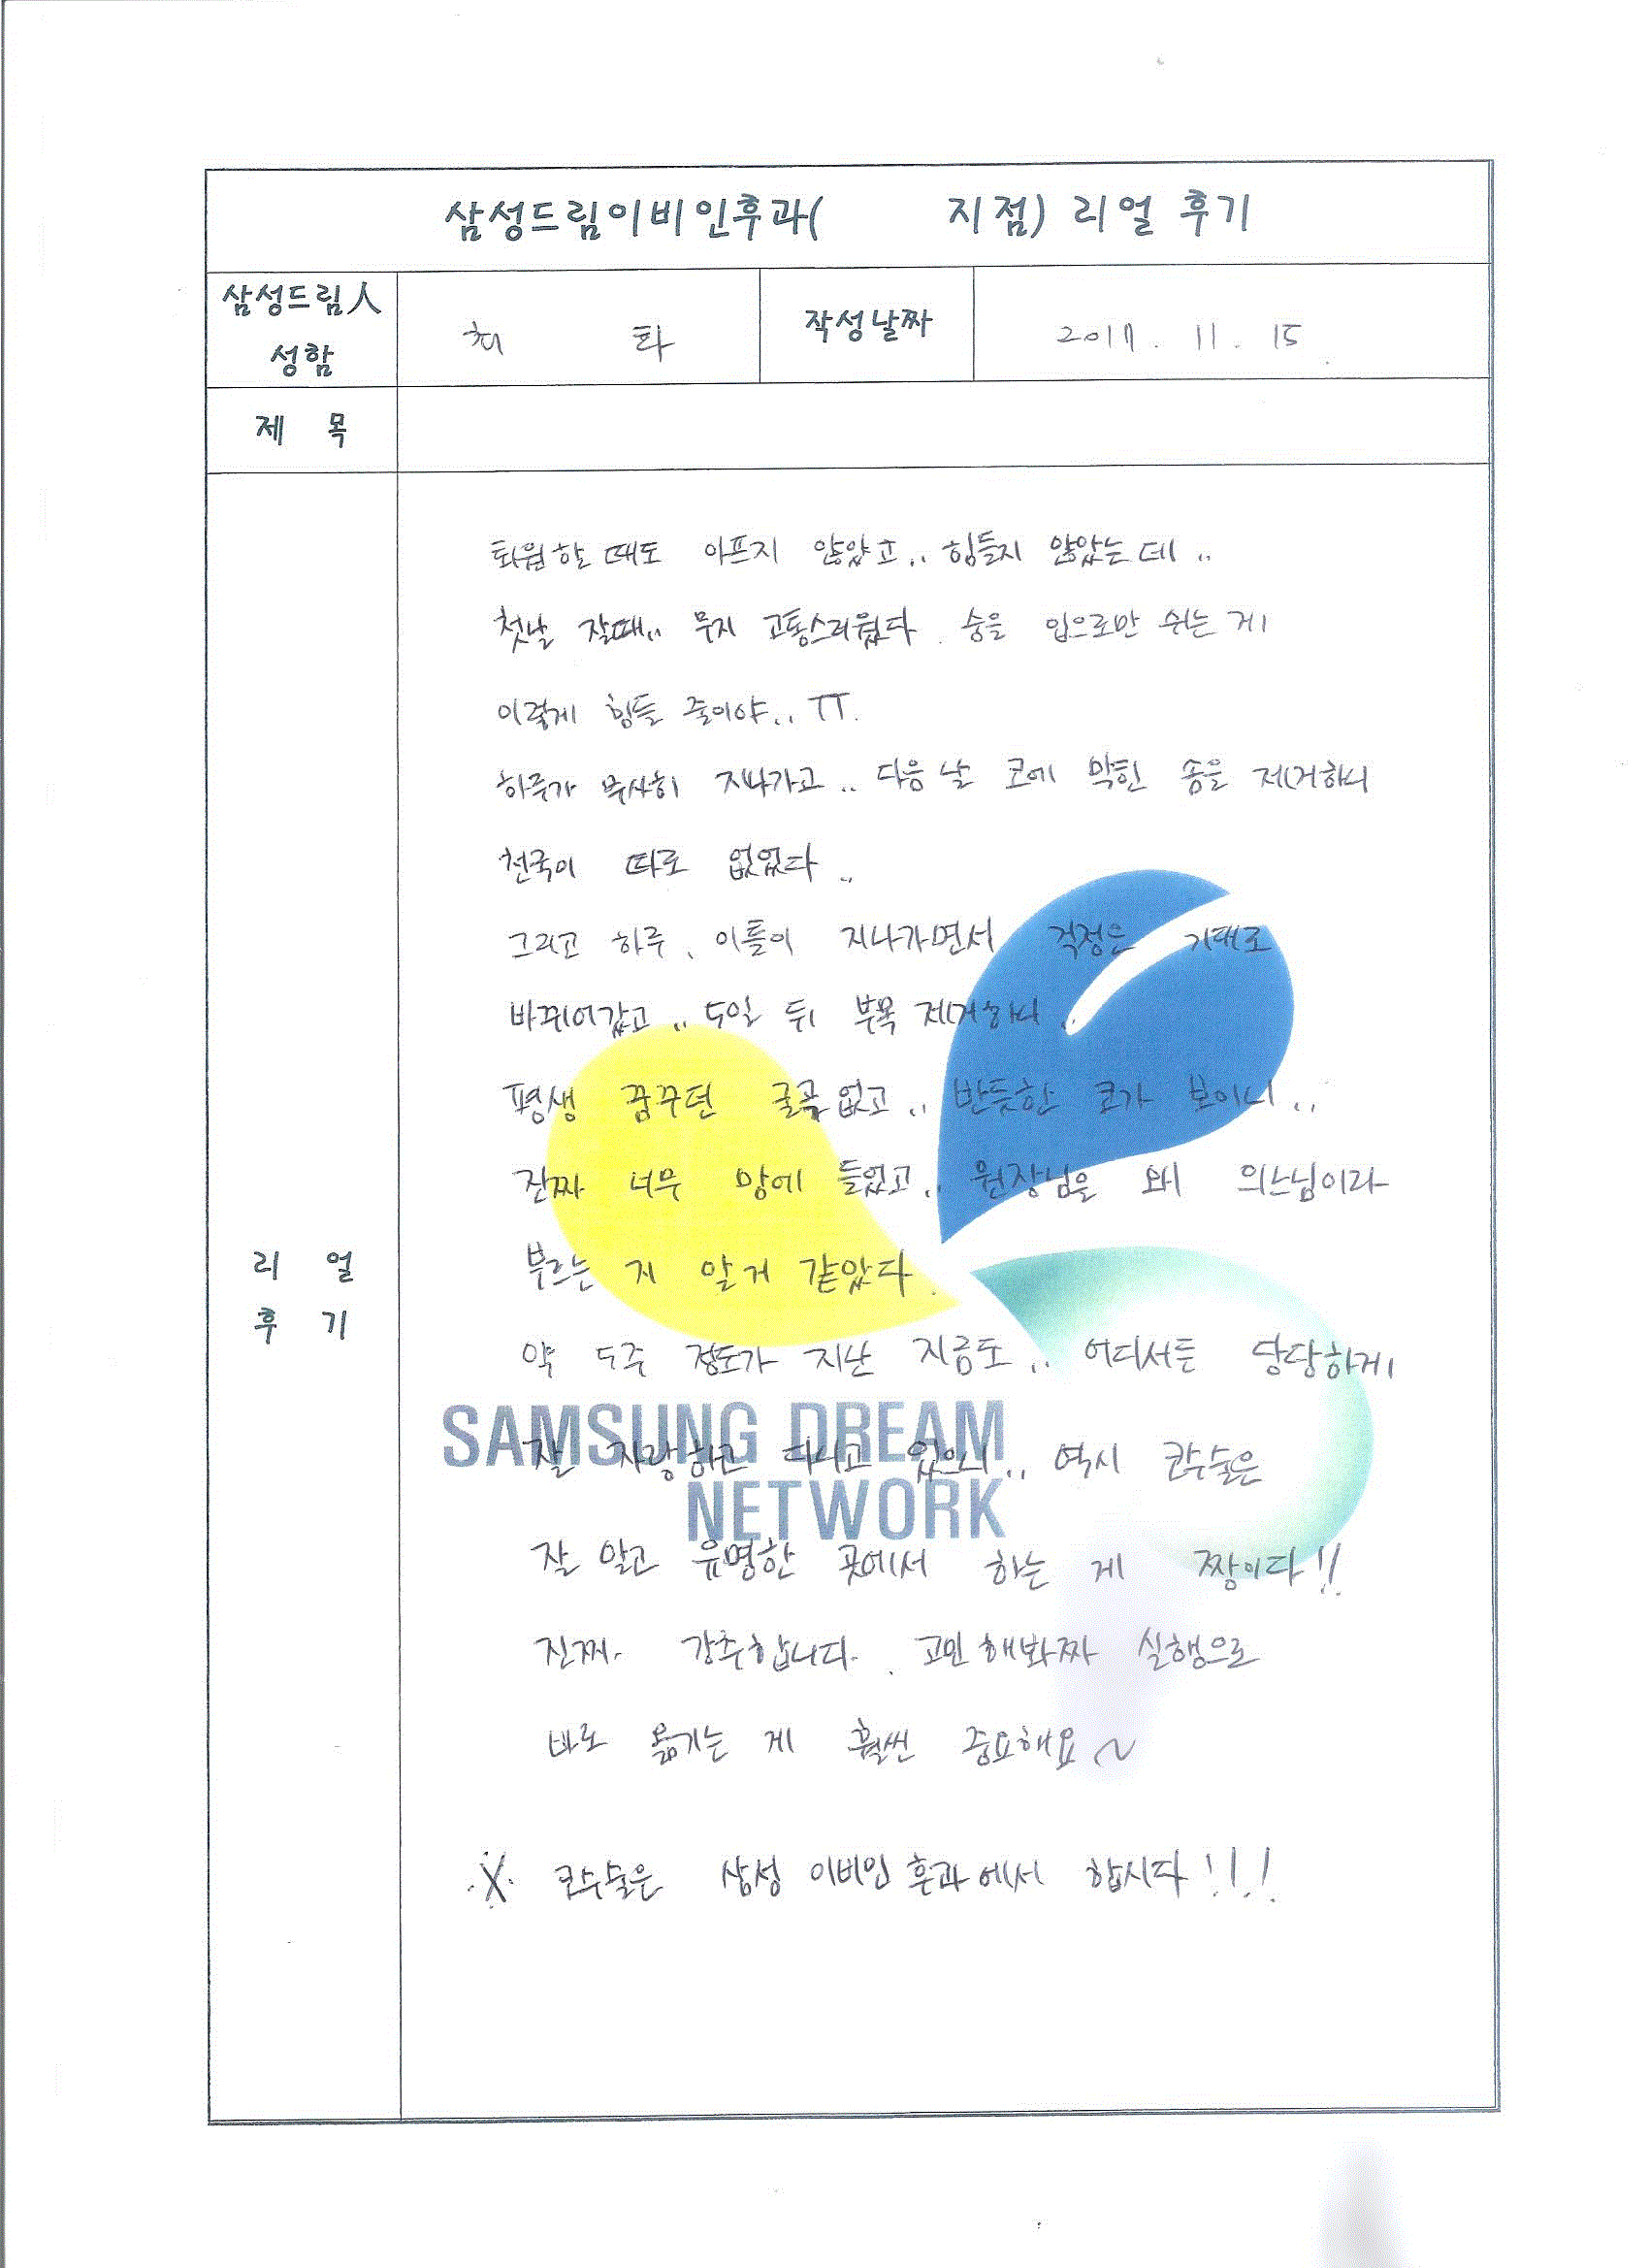 삼성드림이비인후과( 지점) 리얼 후기
삼성드림人 성함
최 화
작성날짜
2017. 11. 15
제 목
리얼 후기
퇴원할 때도 아프지 않았고.. 힘들지 않았는데..
첫날 잘때.. 무지 고통스러웠다. 숨을 입으로만 쉬는 게
이렇게 힘들 줄이야.. TT.
하루가 무사히 지나가고.. 다음 날 코에 막힌 솜을 제거하니
천국이 따로 없었다..
그리고 하루, 이틀이 지나가면서 걱정은 기대로
바뀌어갔고.. 5일 뒤 부목 제거하니..
평생 꿈꾸던 굴곡없고.. 반듯한 코가 보이니..
진짜 너무 맘에 들었고.. 원장님을 왜 의느님이라
부르는 지 알거 같았다.
약 5주 정도가 지난 지금도.. 어디서든 당당하게
잘 자랑하고 다니고 있으니.. 역시 코수술은
잘 알고 유명한 곳에서 하는 게 짱이다!!
진짜. 강추합니다. 고민해봐짜 실행으로
바로 옮기는 게 훨씬 중요해요~
※ 코수술은 삼성 이비인후과에서 합시다!!!
SAMSUNG DREAM
NETWORK